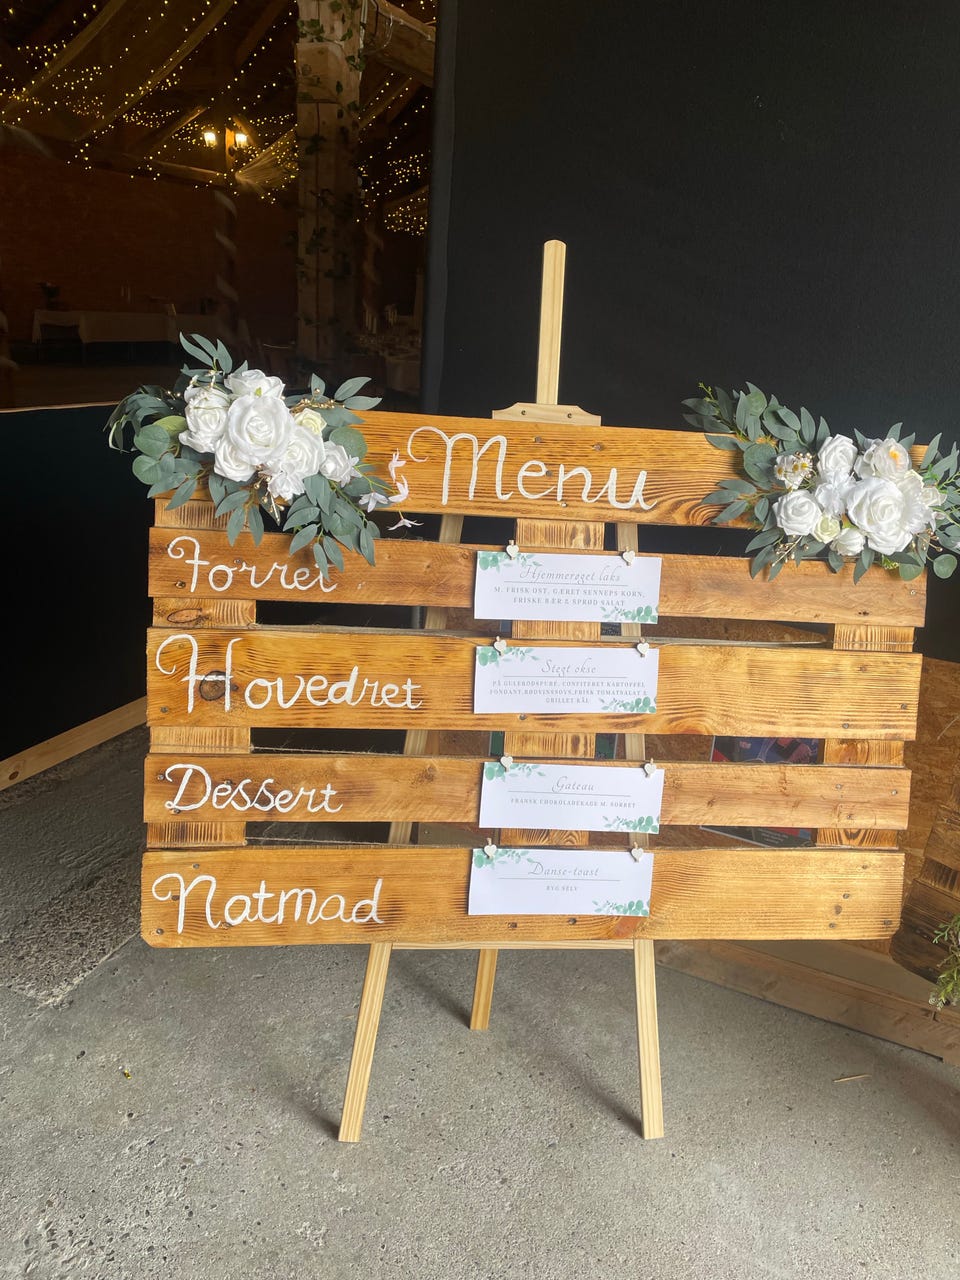 Menu
Forret
Hjemmerøget laks
M. FRISK OST, GÆRET SENNEPS KORN,
FRISKE BÆR & SPRØD SALAT
Hovedret
Stegt okse
PÅ GULERODSPURE, CONFITERET KARTOFFEL
FONDANT, RØDVINSSOVS, FRISK TOMATSALAT &
GRILLET KÅL
Dessert
Gateau
FRANSK CHOKOLADEKAGE M. SORBET
Natmad
Danse-toast
BYG SELV